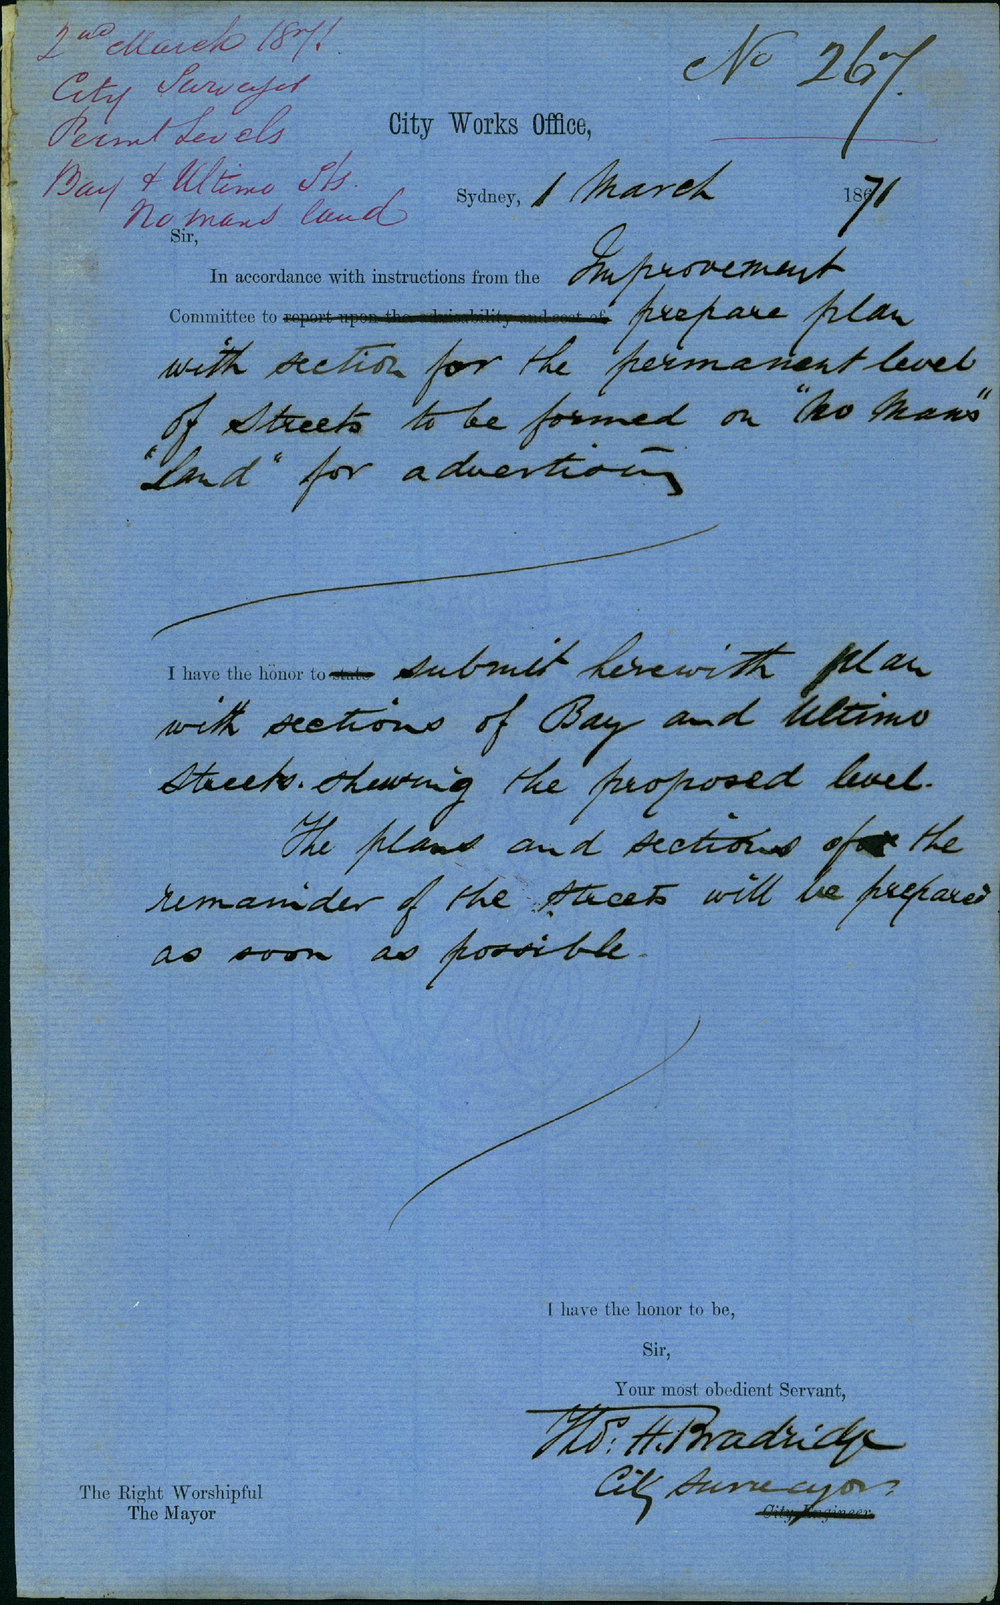 2nd March 1871.
City Surveyor
Permt Levels
Bay & Ultimo Sts.
No mans land
No 267.
City Works Office,
Sydney, 1 March 1871
Sir,
In accordance with instructions from the Improvement
Committee to report upon the advisability and cost of prepare plan
with section for the permanent level
of Streets to be formed on "No Mans"
"Land" for advertising
I have the honor to state submit herewith plan
with sections of Bay and Ultimo
Streets. shewing the proposed level.
The plans and sections of the
remainder of the streets will be prepared
as soon as possible.
I have the honor to be,
Sir,
Your most obedient Servant,
Thos. H. Bradridge
City Surveyor
City Engineer.
The Right Worshipful
The Mayor